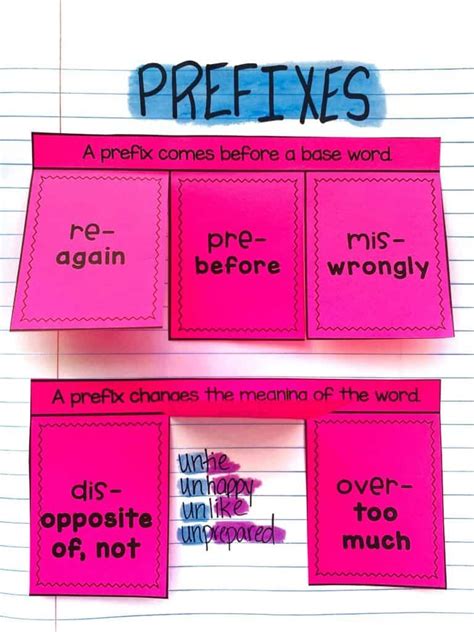 PREFIXES
A prefix comes before a base word.
re-
again
pre-
before
mis-
wrongly
A prefix changes the meaning of the word.
dis-
opposite
of, not
untie
unhappy
unlike
unprepared
over-
too
much